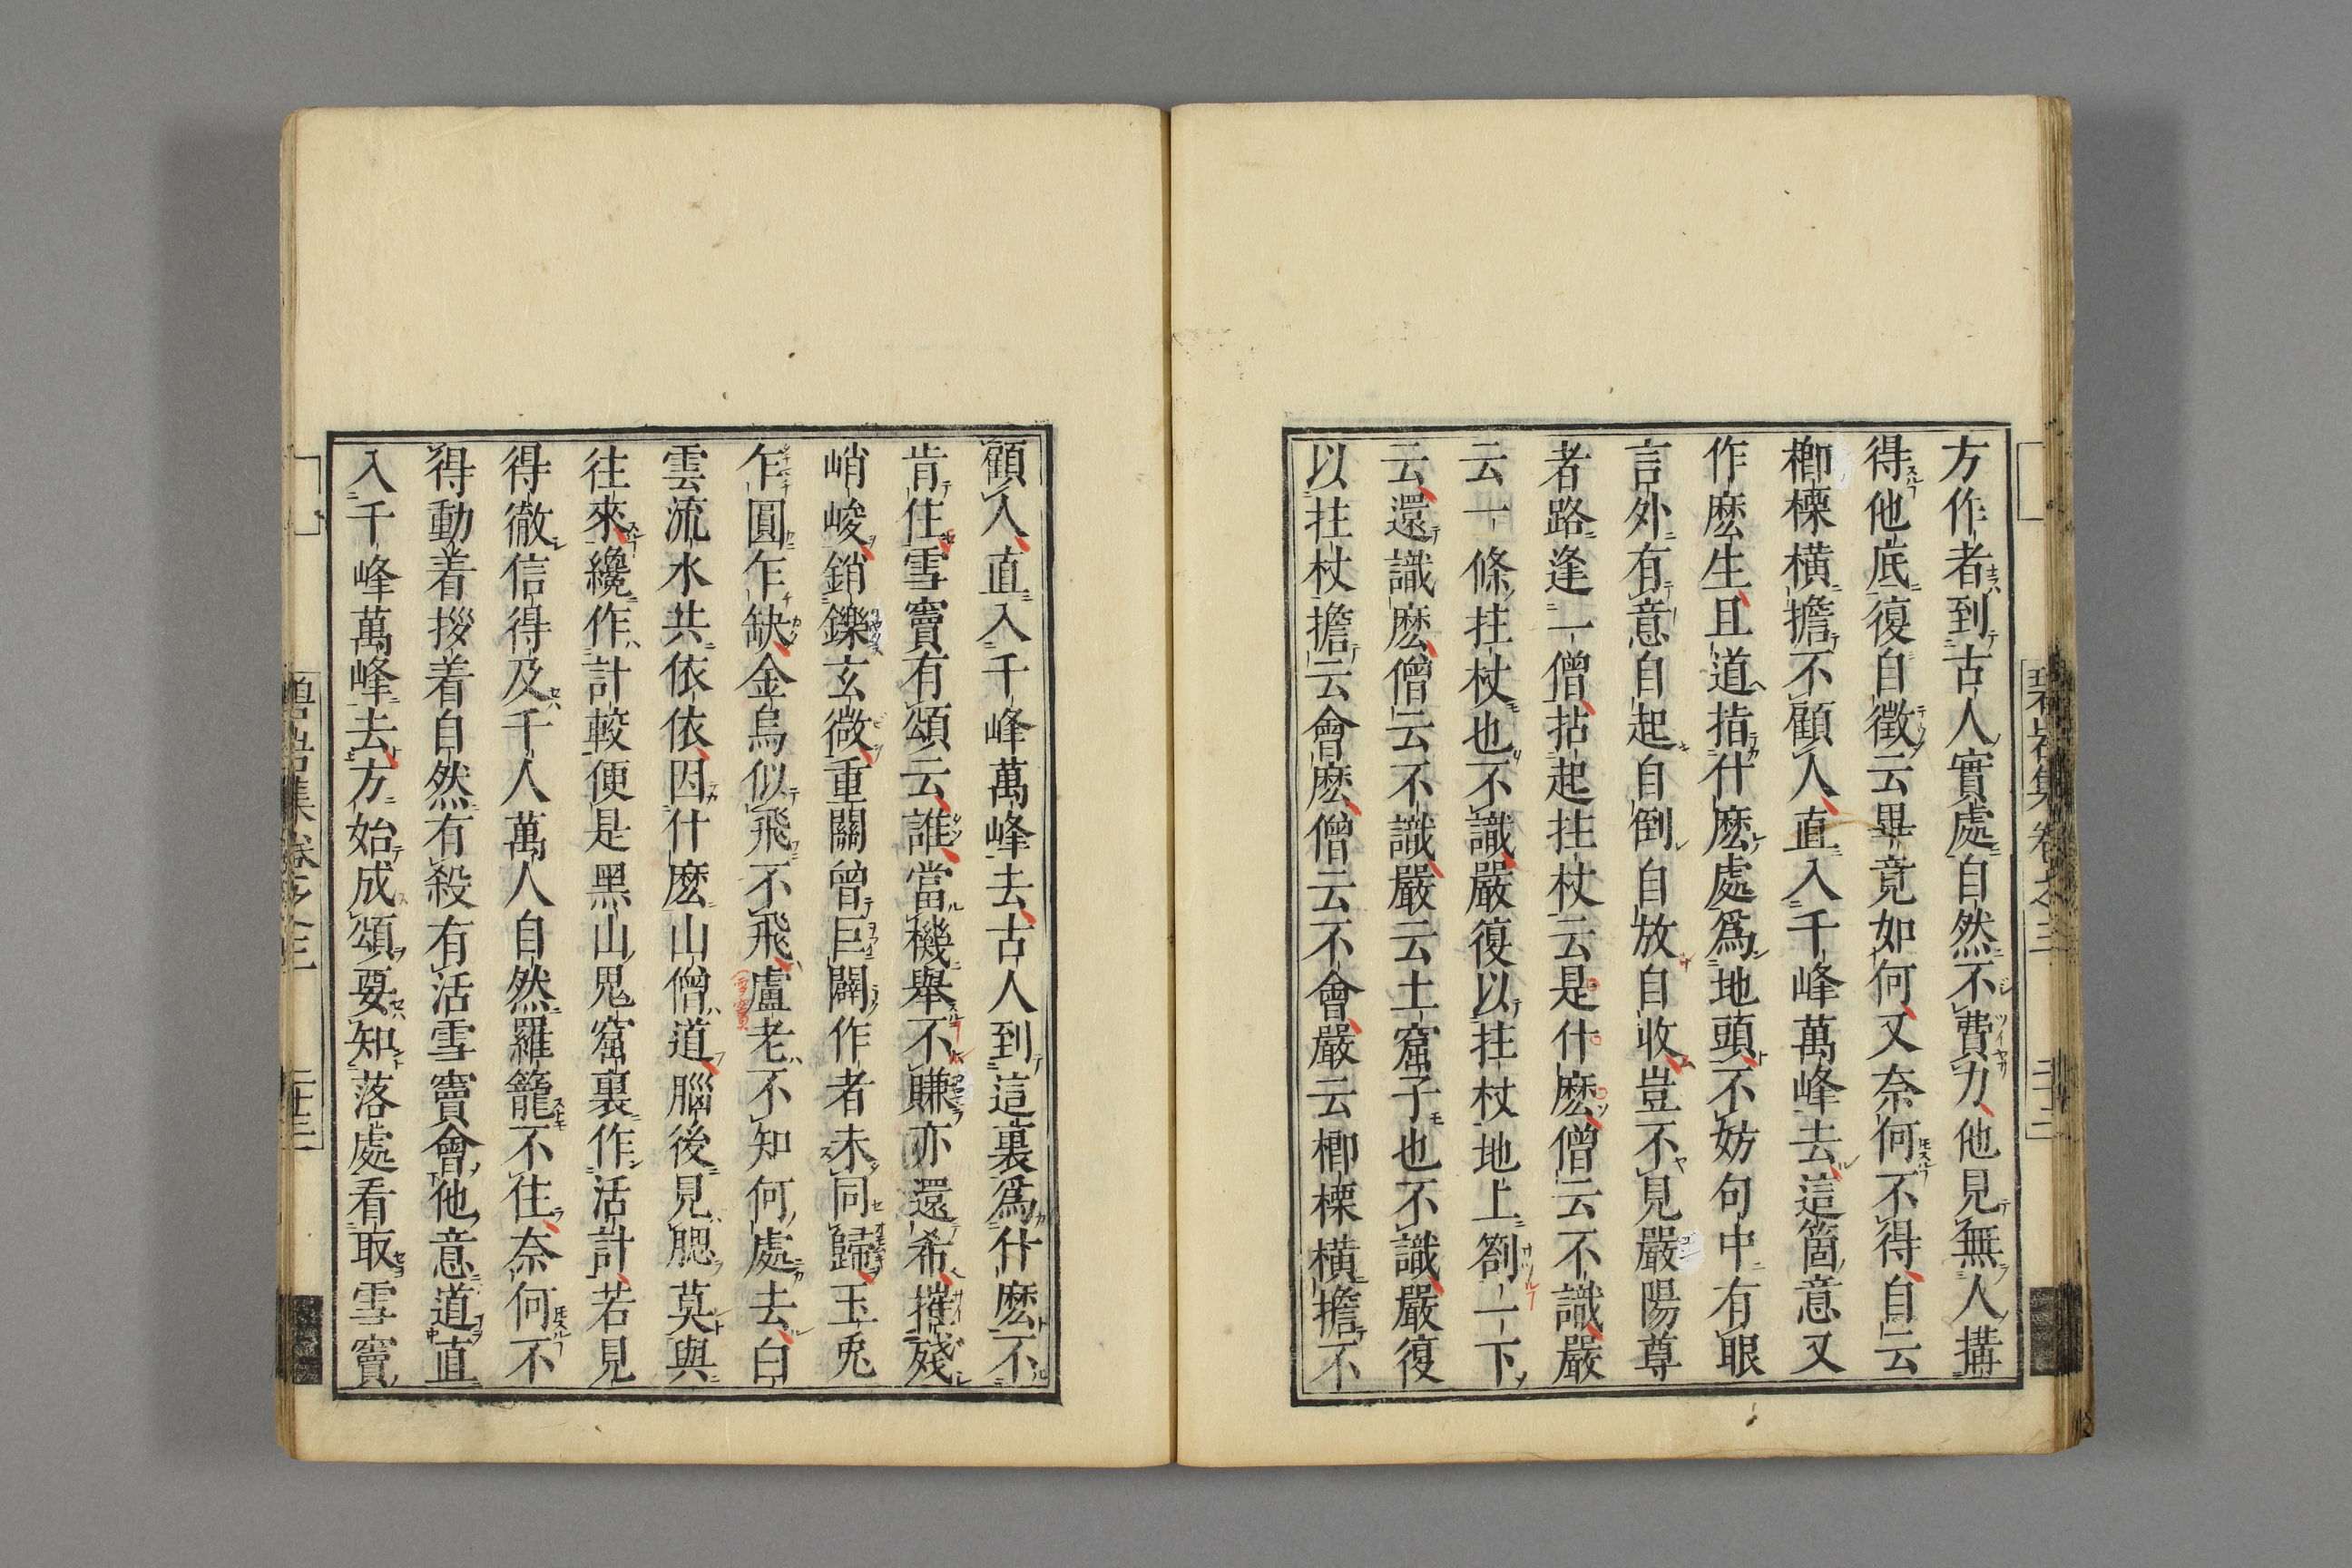 方作者到古人實處自然不費力他見無人搆
得他底復自徵云畢竟如何又奈何不得自云
楖栗橫擔不顧人直入千峰萬峰去這箇意又
作麽生且道指什麽處爲地頭不妨句中有眼
言外有意自起自倒自放自收豈不見嚴陽尊
者路逢一僧拈起拄杖云是什麽僧云不識嚴
云一條拄杖也不識嚴復以拄杖地上劄一下
云還識麽僧云不識嚴云土窟子也不識嚴復
以拄杖擔云會麽僧云不會嚴云楖栗橫擔不
顧人直入千峰萬峰去古人到這裏爲什麽不
肯住雪竇有頌云誰當機舉不賺亦還希摧殘
峭峻銷鑠玄微重關曾巨闢作者未同歸玉兎
乍圓乍缺金烏似飛不飛盧老不知何處去白
雲流水共依依因什麽山僧道腦後見腮莫與
往來纔作計較便是黑山鬼窟裏作活計若見
得徹信得及千人萬人自然羅籠不住奈何不
得動着拶着自然有殺有活雪竇會他意道直
入千峰萬峰去方始成頌要知落處看取雪竇
碧岩集卷之三
二十三